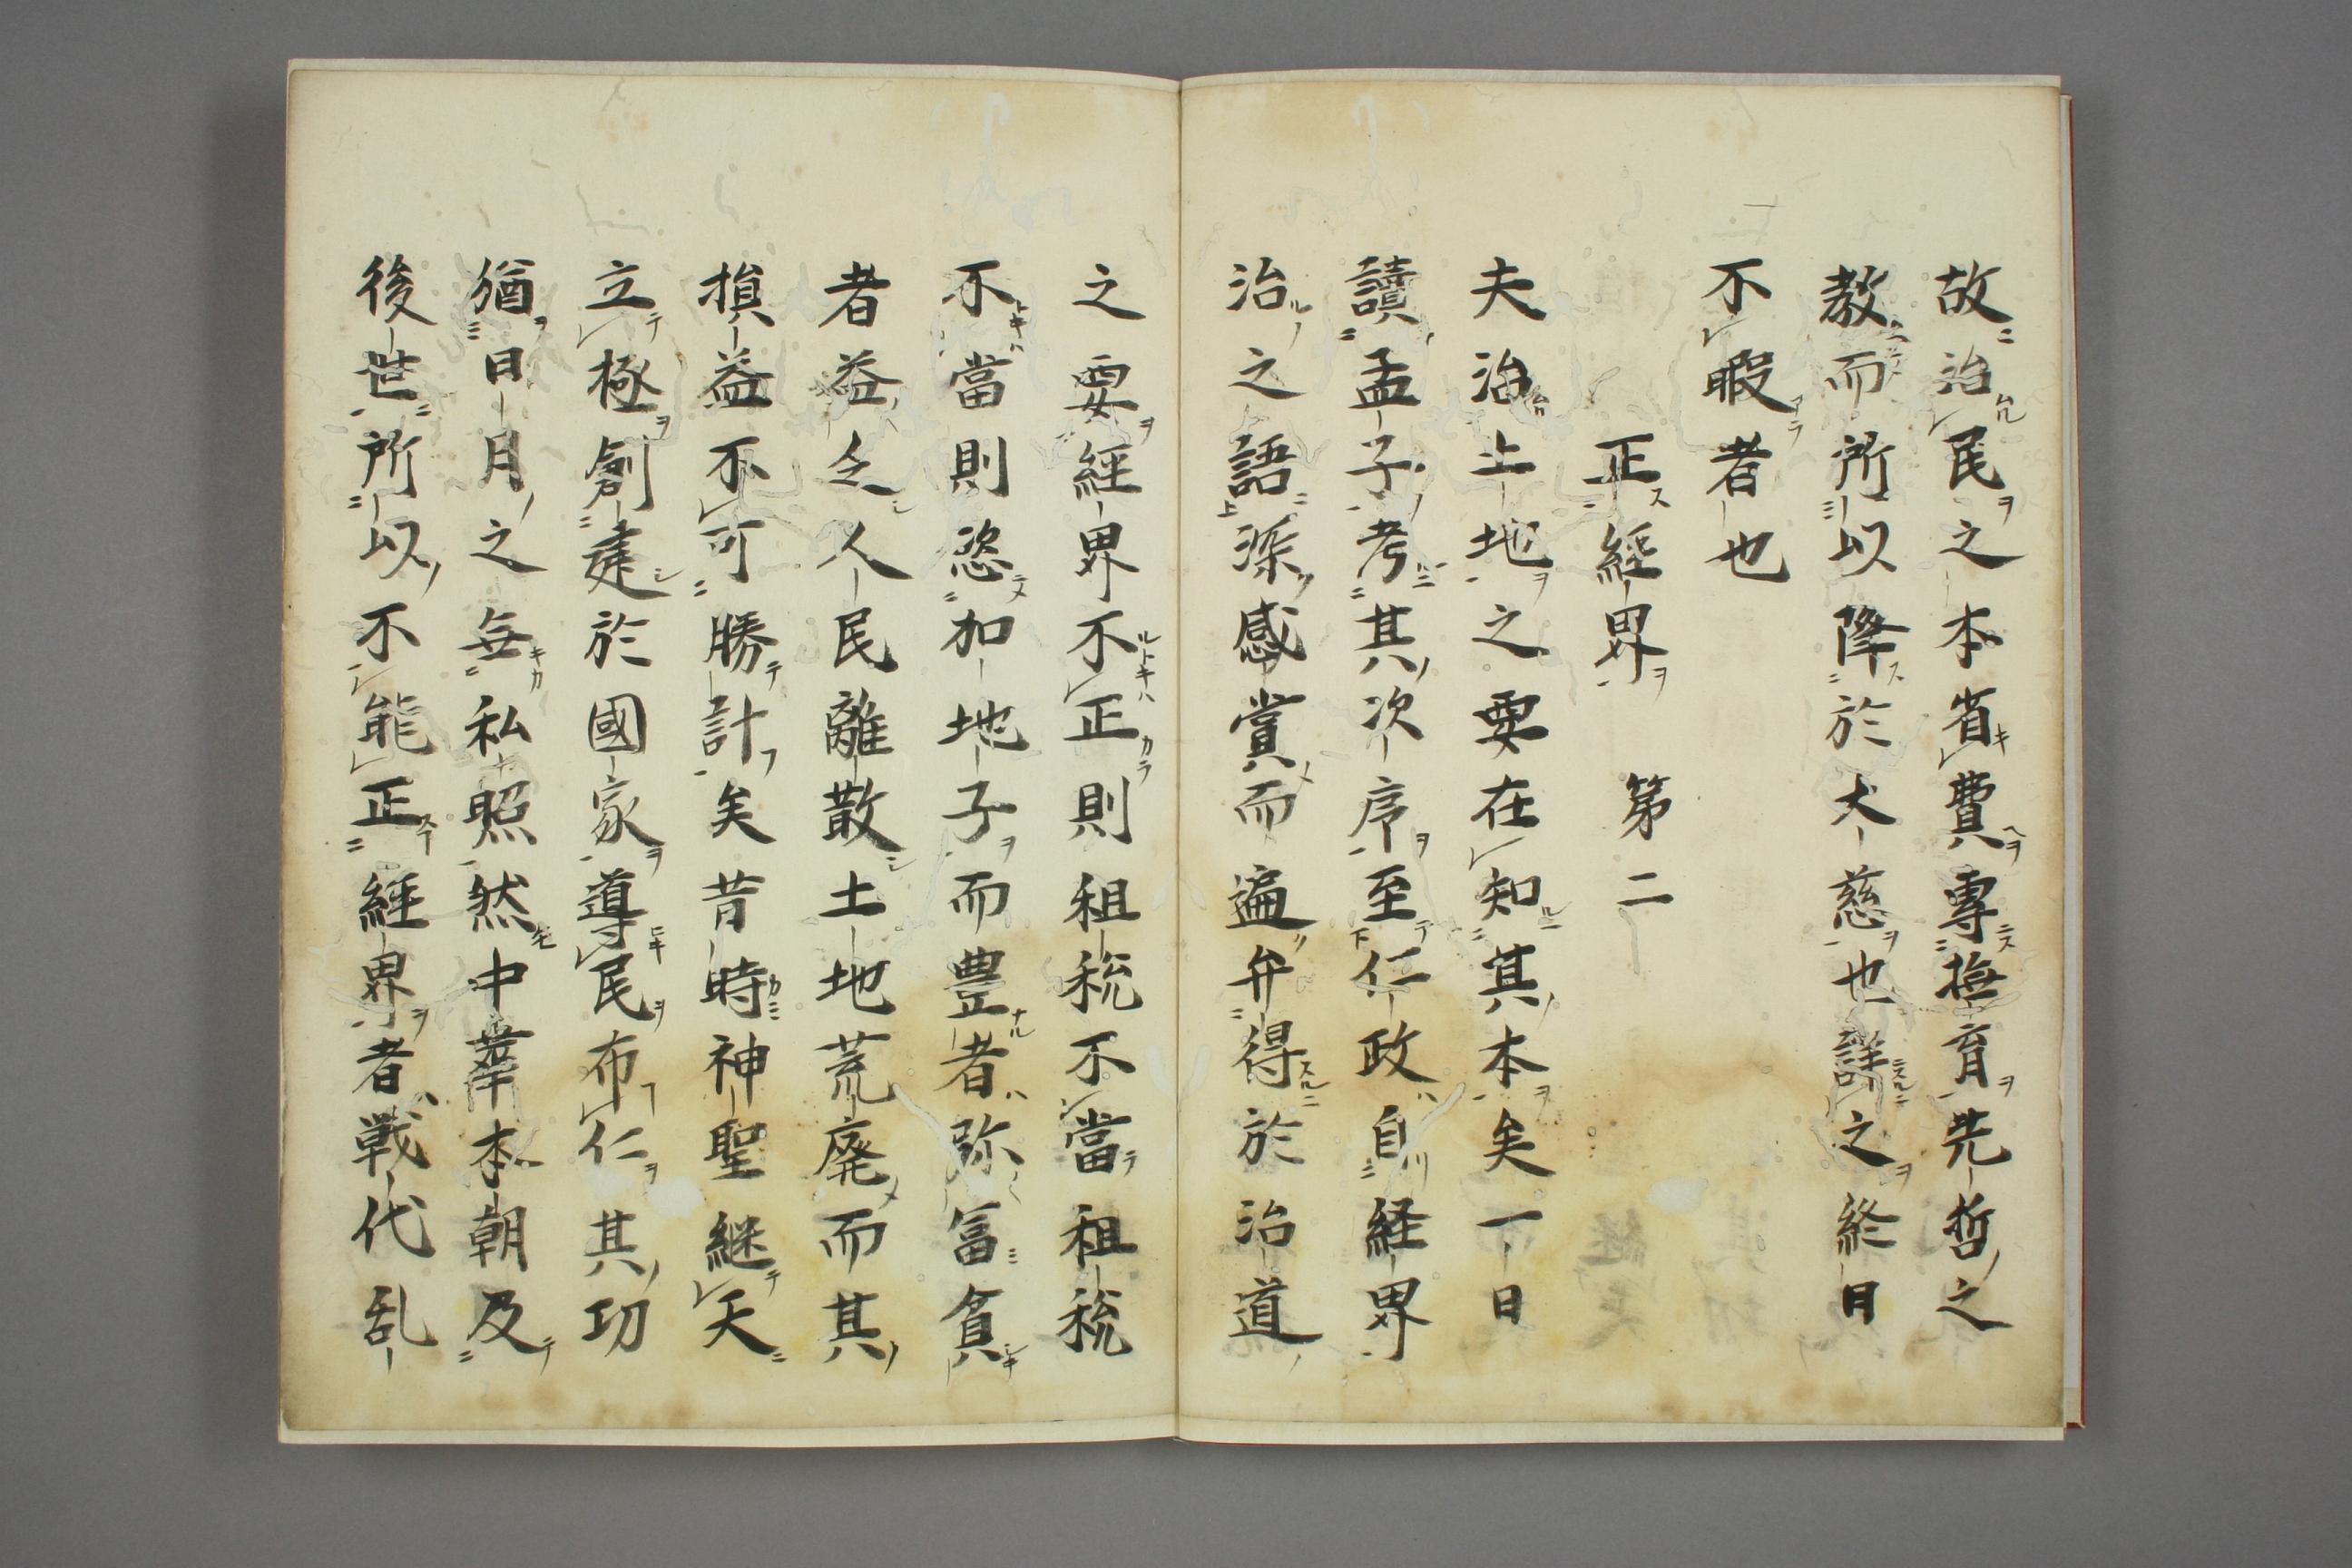 故治民之本省費專撫育先哲之
教而所以降於大慈也詳之終日
不暇者也
正經界 第二
夫治土地之要在知其本矣一日
讀孟子考其次序至仁政自経界
治之語深感賞而遍弁得於治道
之要經界不正則租税不當租税
不當則恣加地子而豊者弥冨貧
者益乏人民離散土地荒廃而其
損益不可勝計矣昔時神聖継天
立極創建於國家導民布仁其功
猶日月之無私照然中華本朝及
後世所以不能正經界者戦代乱